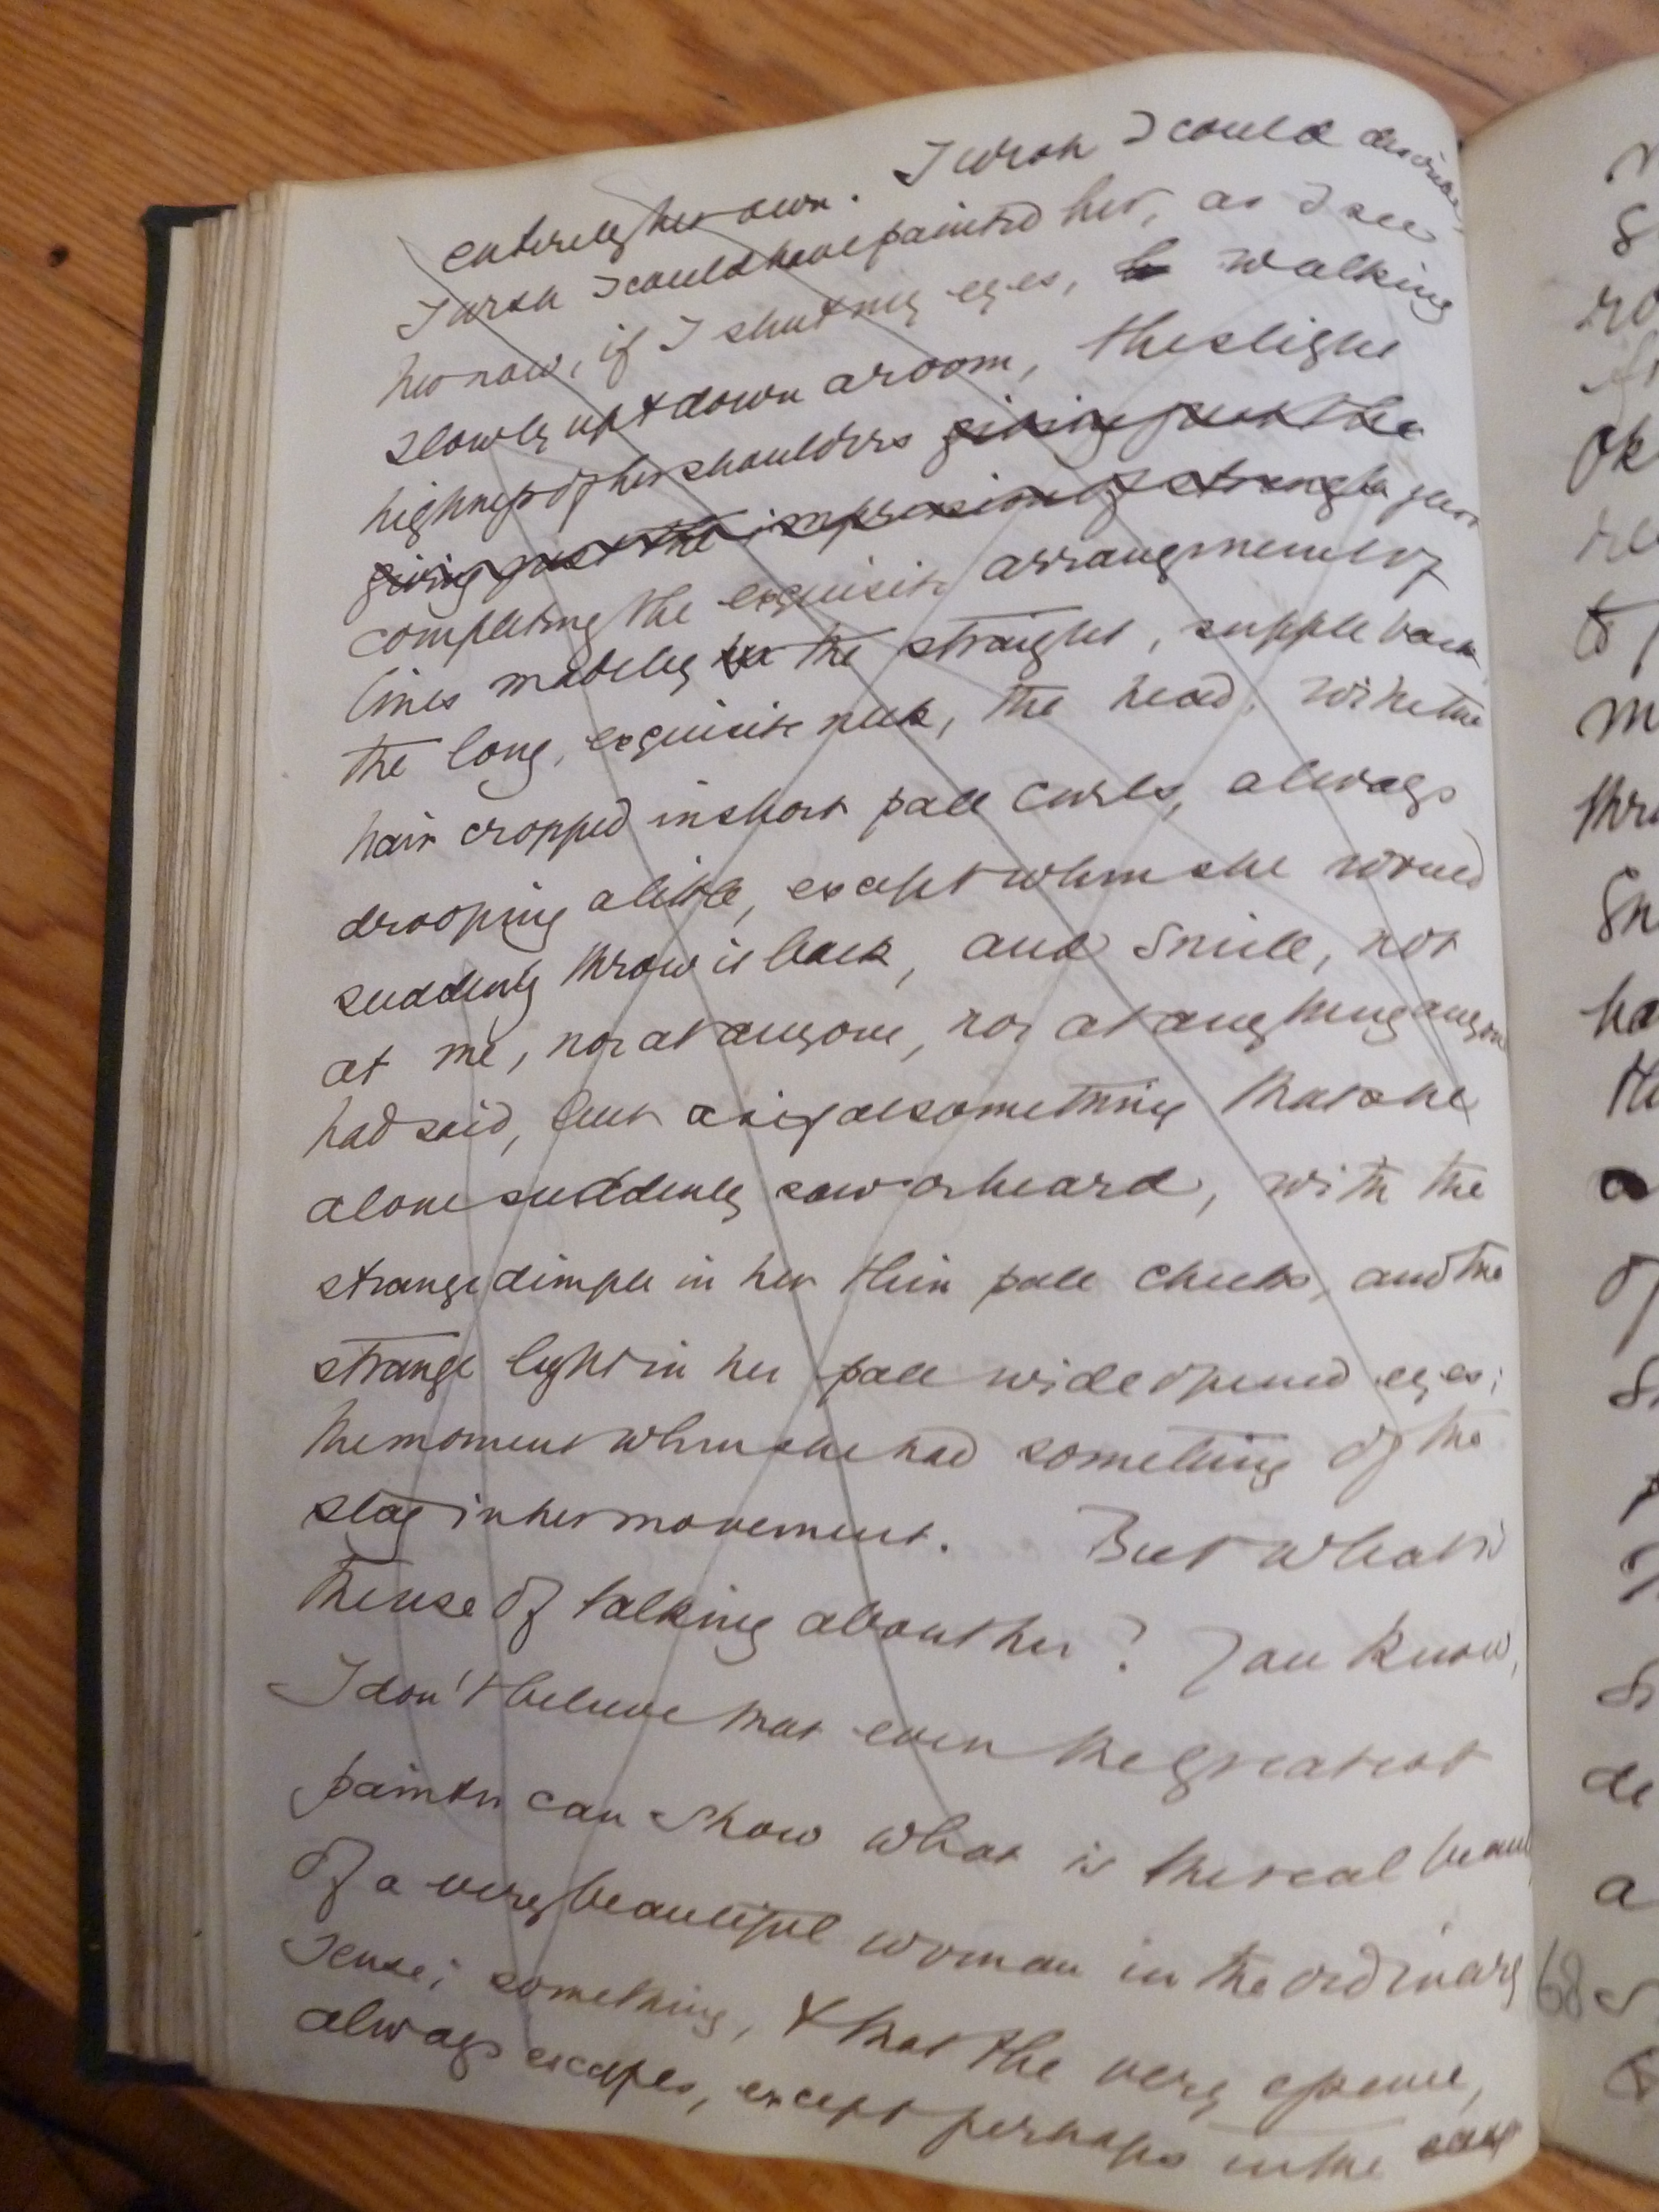 entirely her own. I wish I could describe
I wish I could have painted her, as I see
her now, if I shut my eyes, walking
slowly up & down a room, the slight
highness of her shoulders giving just the
giving just the impression of strength just
completing the exquisite arrangement of
lines made by the straight, supple back
the long, exquisite neck, the head, with the
hair cropped in short pale curls, always
drooping a little, except when she would
suddenly throw it back, and smile, not
at me, nor at anyone, nor at anything anyone
had said, but as if at something that she
alone suddenly saw or heard, with the
strange dimple in her thin pale cheeks, and the
strange light in her pale wide opened eyes;
the moment when she had something of the
stag in her movement. But what is
the use of talking about her? You know,
I don't believe that even the greatest
painter can show what is the real beauty
of a very beautiful woman in the ordinary
sense; something, & that the very essence,
always escapes, except perhaps in the
68